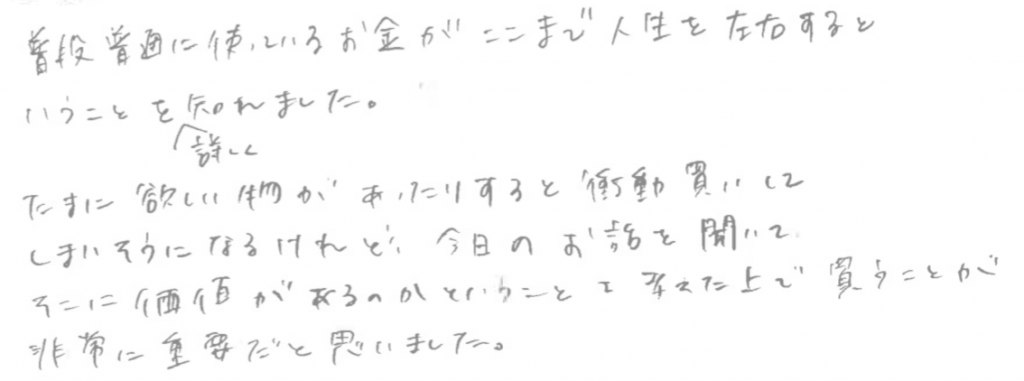 普段普通に使っているお金がここまで人生を左右すると
いうことを知れました。
詳しく
たまに欲しい物があったりすると衝動買いして
しまいそうになるけれど、今日のお話を聞いて
そこに価値があるのかということを考えた上で買うことが
非常に重要だと思いました。